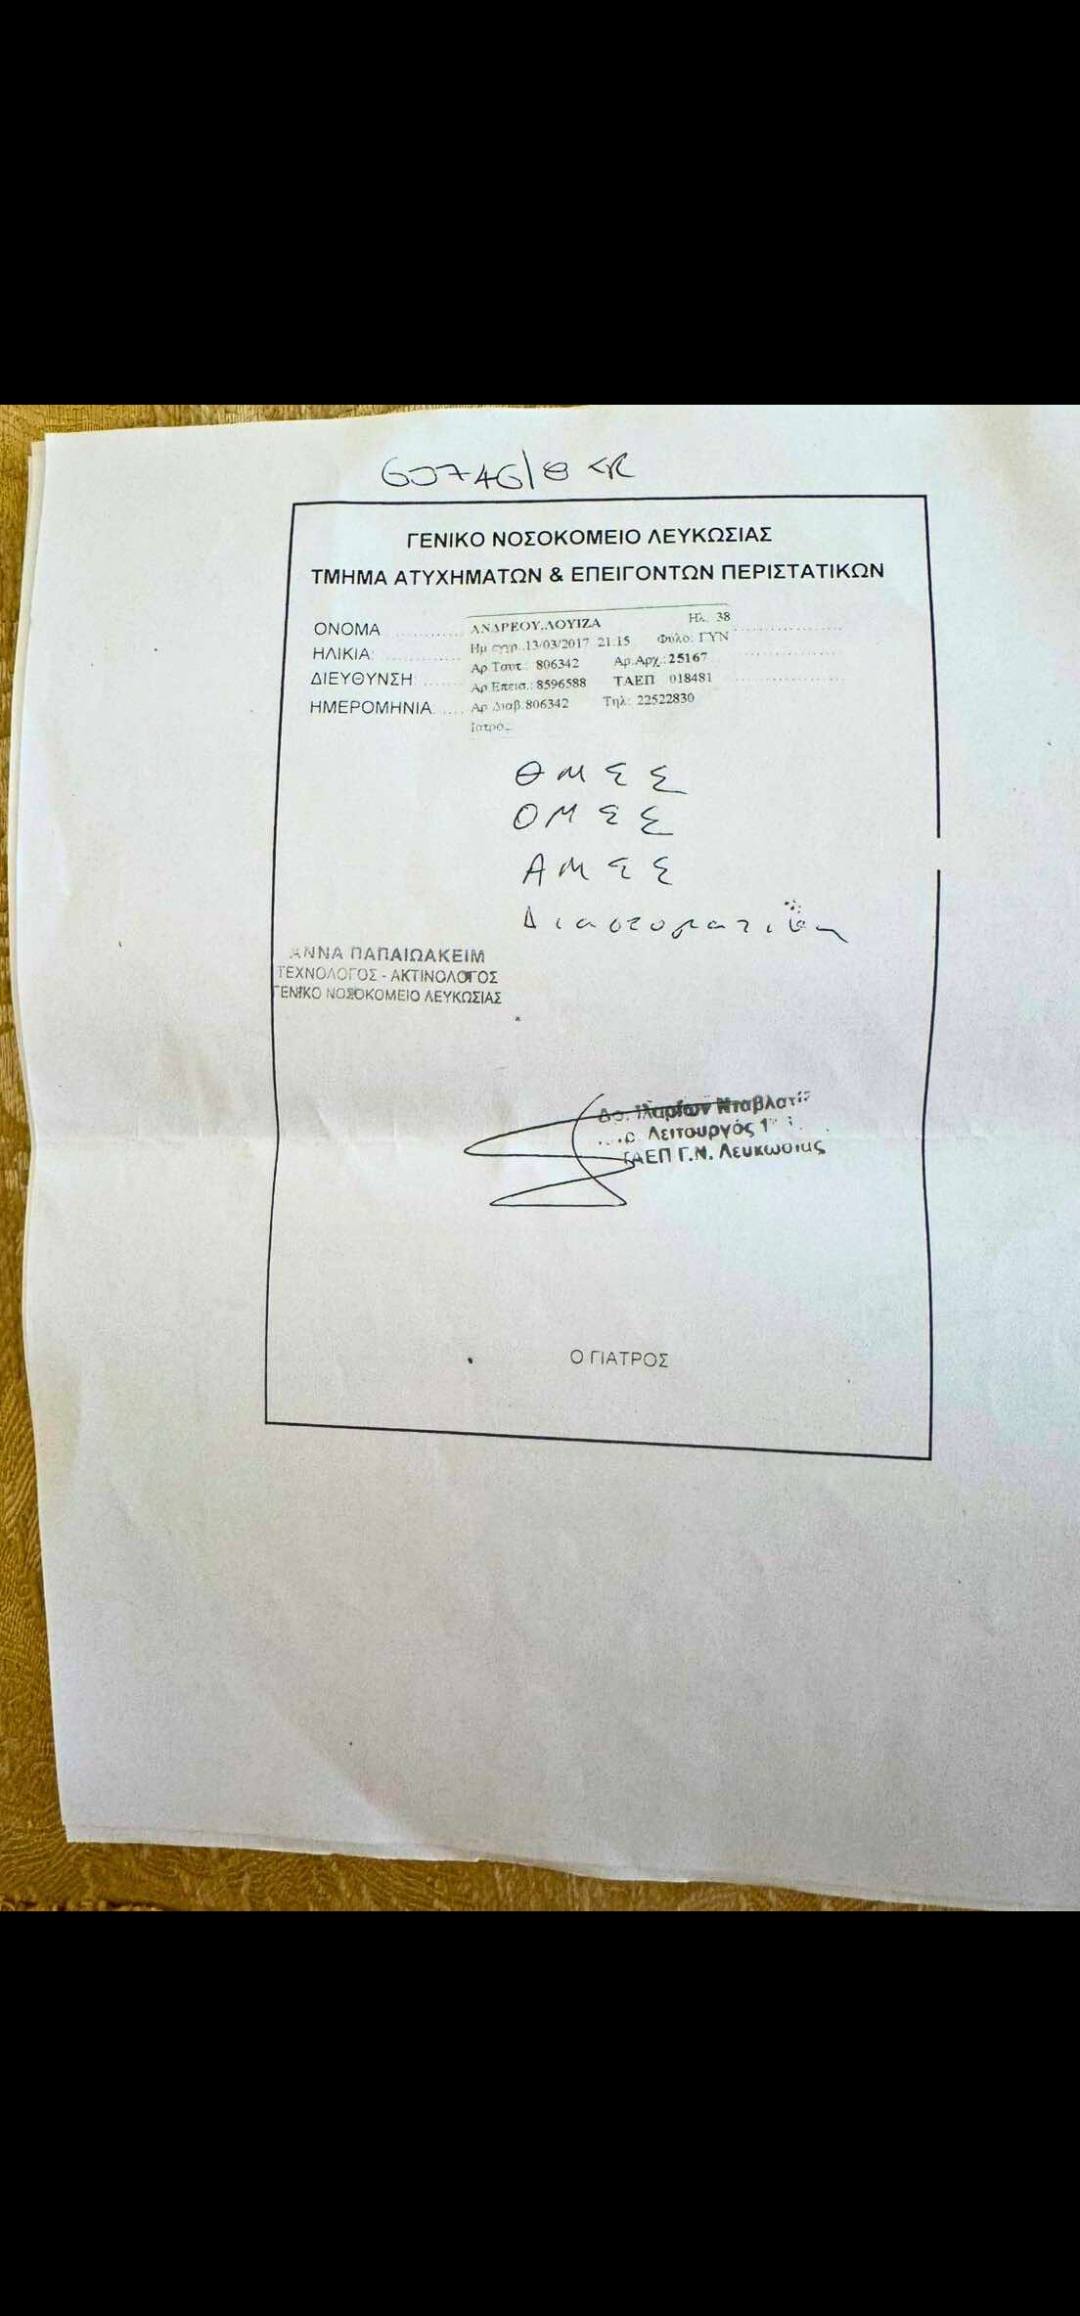 60746/8 CR
ΓΕΝΙΚΟ ΝΟΣΟΚΟΜΕΙΟ ΛΕΥΚΩΣΙΑΣ
ΤΜΗΜΑ ΑΤΥΧΗΜΑΤΩΝ & ΕΠΕΙΓΟΝΤΩΝ ΠΕΡΙΣΤΑΤΙΚΩΝ
ΟΝΟΜΑ ΑΝΔΡΕΟΥ.ΛΟΥΙΖΑ Ηλ. 38
ΗΛΙΚΙΑ: Ημ εγγρ.:13/03/2017 21:15 Φύλο: ΓΥΝ
Αρ Ταυτ.: 806342 Αρ.Αρχ.:25167
ΔΙΕΥΘΥΝΣΗ: Αρ Επεισ.: 8596588 ΤΑΕΠ 018481
ΗΜΕΡΟΜΗΝΙΑ: Αρ Διαβ.806342 Τηλ: 22522830
Ιατρός
ΘΜΣΣ
ΟΜΣΣ
ΑΜΣΣ
Διαστοματική
ΑΝΝΑ ΠΑΠΑΙΩΑΚΕΙΜ
ΤΕΧΝΟΛΟΓΟΣ - ΑΚΤΙΝΟΛΟΓΟΣ
ΓΕΝΙΚΟ ΝΟΣΟΚΟΜΕΙΟ ΛΕΥΚΩΣΙΑΣ
Δρ. Ιλαρίων
Λειτουργός 1
ΤΑΕΠ Γ.Ν. Λευκωσίας
Ο ΓΙΑΤΡΟΣ